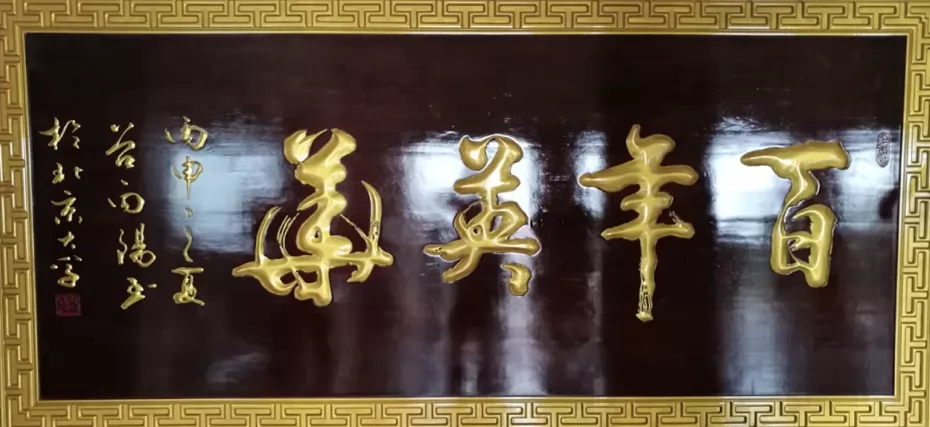 百年英華
丙申之夏
谷向陽書
於北京大学